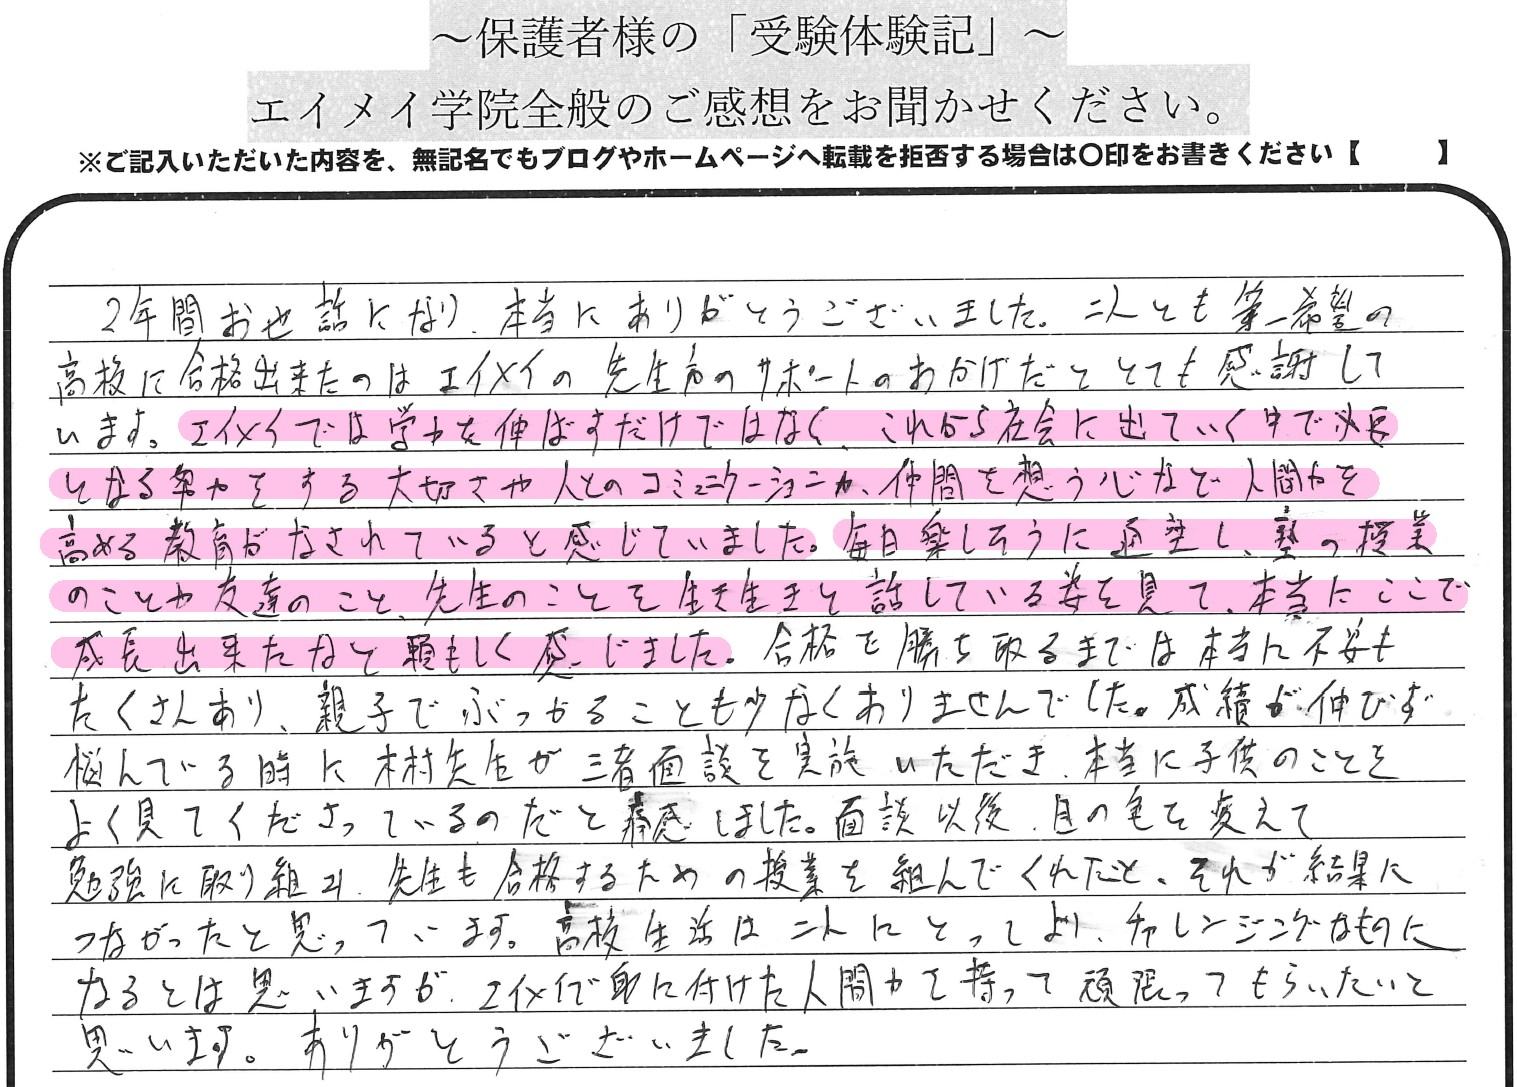 ～保護者様の「受験体験記」～
エイメイ学院全般のご感想をお聞かせください。
※ご記入いただいた内容を、無記名でもブログやホームページへ転載を拒否する場合は〇印をお書きください【　　　】
2年間お世話になり、本当にありがとうございました。二人とも第一希望の
高校に合格出来たのはエイメイの先生方のサポートのおかげだととても感謝して
います。エイメイでは学力を伸ばすだけではなく、これから社会に出ていく中で必要
となる努力をする大切さや人とのコミュニケーション力、仲間を想う心など人間力を
高める教育がなされていると感じていました。毎日楽しそうに通塾し、塾の授業
のことや友達のこと、先生のことを生き生きと話している姿を見て、本当にここで
成長出来たなと頼もしく感じました。合格を勝ち取るまでは本当に不安も
たくさんあり、親子でぶつかることも少なくありませんでした。成績が伸びず
悩んでいる時に木村先生が三者面談を実施いただき、本当に子供のことを
よく見てくださっているのだと痛感しました。面談以後、目の色を変えて
勉強に取り組み、先生も合格するための授業を組んでくれたこと、それが結果に
つながったと思っています。高校生活は二人にとってより、チャレンジングなものに
なるとは思いますが、エイメイで身に付けた人間力を持って頑張ってもらいたいと
思います。ありがとうございました。